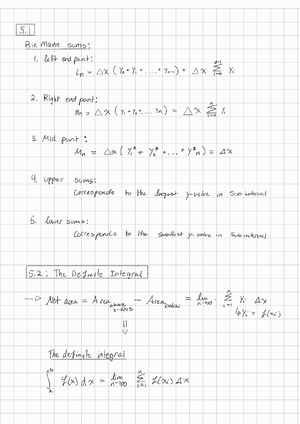 5.1
Riemann sums:
1. left end point:
Ln = Δx (y₀ + y₁ + ..... + yₙ₋₁) = Δx Σ(i=0 to n-1) yᵢ
2. Right end point:
Rn = Δx (y₁ + y₂ + ... yₙ) = Δx Σ yᵢ
3. Mid point:
Mn = Δx (y₁* + y₂* + ... + yₙ*) = Δx
4. upper sums:
Corresponds to the largest y-value in Subinterval
5. lower sums:
Corresponds to the smallest y-value in Subinterval
5.2: The Definite Integral
→ Net area = Area above x-axis − Area below = lim n→∞ Σ(i=1 to n) yᵢ Δx
yᵢ = f(xᵢ)
The definite integral
∫ f(x) dx = lim n→∞ Σ(i=1 to n) f(xᵢ) Δx